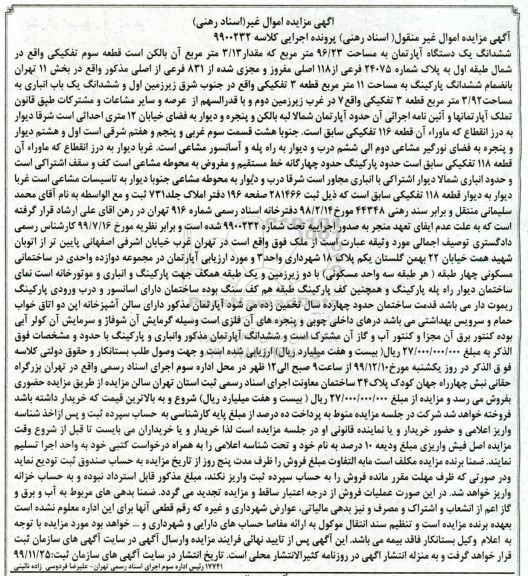 آگهی مزایده اموال غیر(اسناد رهنی)
آگهی مزایده اموال غیر منقول( اسناد رهنی) پرونده اجرایی کلاسه ۹۹۰۰۲۳۲
ششدانگ یک دستگاه آپارتمان به مساحت ۹۶/۲۳ متر مربع که مقدار۳/۱۳ متر مربع آن بالکن است قطعه سوم تفکیکی واقع در
شمال طبقه اول به پلاک شماره ۲۴۰۷۵ فرعی از۱۱۸ اصلی مفروز و مجزی شده از ۸۳۱ فرعی از اصلی مذکور واقع در بخش ۱۱ تهران
بانضمام ششدانگ پارکینگ به مساحت ۱۱ متر مربع قطعه ۳ تفکیکی واقع در جنوب شرق زیرزمین اول و ششدانگ یک باب انباری به
مساحت۳/۹۲ متر مربع قطعه ۳ تفکیکی واقع۷ در غرب زیرزمین دوم و با قدرالسهم از عرصه و سایر مشاعات و مشترکات طبق قانون
تملک آپارتمانها و آئین نامه اجرائی آن حدود آپارتمان شمالا لبه بالکن و پنجره و دیوار به فضای خیابان ۱۲ متری احداثی است شرقا دیوار
به درز انقطاع که ماوراء آن قطعه ۱۱۶ تفکیکی سابق است. جنوبا هشت قسمت سوم غربی و پنجم و هفتم شرقی است اول و هشتم دیوار
و پنجره به فضای نورگیر مشاعی دوم الی ششم درب و دیوار به راه پله و آسانسور مشاعی است. غربا دیوار به درز انقطاع که ماوراء آن
قطعه ۱۱۸ تفکیکی سابق است حدود پارکینگ حدود چهارگانه خط مستقیم و مفروض به محوطه مشاعی است کف و سقف اشتراکی است
و حدود انباری شمالا دیوار اشتراکی با انباری مجاور است شرقا درب و دیوار به محوطه مشاعی جنوبا دیوار به تاسیسات مشاعی است غربا
دیوار به دیوار قطعه ۱۱۸ تفکیکی سابق است که ذیل ثبت ۲۸۱۴۶۶ صفحه ۱۹۶ دفتر املاک جلد۷۳۱ ثبت و مع الواسطه به نام آقای محمد
سلیمانی منتقل و برابر سند رهنی ۴۴۳۴۸ مورخ۹۸/۲/۱۴ دفترخانه اسناد رسمی شماره ۹۱۶ تهران در رهن آقای علی ارشاد قرار گرفته
است که به علت عدم ایفای تعهد منجر به صدور اجراییه تحت شماره ۹۹۰۰۲۳۲ شده است و برابر نظریه مورخ ۹۹/۷/۱۶ کارشناس رسمی
دادگستری توصیف اجمالی مورد وثیقه عبارت است از ملک فوق واقع است در تهران غرب خیابان اشرفی اصفهانی پایین تر از اتوبان
شهید همت خیابان ۲۲ بهمن گلستان یکم پلاک ۱۸ شهرداری واحد۳ و مورد ارزیابی آپارتمان در مجموعه دوازده واحدی در ساختمانی
مسکونی چهار طبقه ( هر طبقه سه واحد مسکونی) با دو زیرزمین و یک طبقه همکف جهت پارکینگ و انباری و موتورخانه است نمای
ساختمان دیوار راه پله پارکینگ و همچنین کف پارکینگ طبقه هم کف سنگ بوده ساختمان دارای آسانسور و درب ورودی پارکینگ
ریموت دار می باشد قدمت ساختمان حدود چهارده سال تخمین زده می شود آپارتمان مذکور دارای سالن آشپزخانه اپن دو اتاق خواب
حمام و سرویس بهداشتی می باشد درهای داخلی چوبی و پنجره های آن فلزی است وسیله گرمایش آن شوفاژ و سرمایش آن کولر آبی
بوده کنتور برق آن مجزا و کنتور آب و گاز آن مشترک است و ششدانگ آپارتمان مذکور وانباری و پارکینگ با حدود و مشخصات فوق
الذکر به مبلغ ۲۷/۰۰۰/۰۰۰/۰۰۰ ریال( بیست و هفت میلیارد ریال) ارزیابی شده است و جهت وصول طلب بستانکار و حقوق دولتی کلاسه
فوق الذکر در روز یکشنبه مورخ۹۹/۱۲/۱۰ از ساعت ۹ صبح الی۱۲ ظهر در محل اداره سوم اجرای اسناد رسمی واقع در تهران بزرگراه
حقانی نبش چهارراه جهان کودک پلاک۳۴ ساختمان معاونت اجرای اسناد رسمی ثبت استان تهران سالن مزایده از طریق مزایده حضوری
بفروش می رسد و مزایده از مبلغ ۲۷/۰۰۰/۰۰۰/۰۰۰ ریال ( بیست و هفت میلیارد ریال) شروع و به بالاترین قیمت که خریدار داشته باشد
فروخته خواهد شد شرکت در جلسه مزایده منوط به پرداخت ده درصد از مبلغ پایه کارشناسی به حساب سپرده ثبت و پس ازاخذ شناسه
واریز اعلامی و حضور خریدار و یا نماینده قانونی او در جلسه مزایده است لذا خریدار و یا خریداران می بایست تا قبل از شروع وقت
مزایده اصل فیش واریزی مبلغ ودیعه ۱۰ درصد به نام خود و تحت شناسه اعلامی را به همراه درخواست کتبی خود به واحد اجرا تسلیم
نمایند. ضمنا برنده مزایده مکلف است مابه التفاوت مبلغ فروش را ظرف مدت پنج روز از تاریخ مزایده به حساب صندوق ثبت تودیع نماید
ودر صورتی که ظرف مهلت مقرر مانده فروش را به حساب سپرده ثبت واریز نکند، مبلغ مذکور قابل استرداد نبوده و به حساب خزانه
واریز خواهد شد. در این صورت عملیات فروش از درجه اعتبار ساقط و مزایده تجدید می گردد. ضمنا بدهی های مربوط به آب و برق و
گاز اعم از انشعاب و اشتراک و مصرف و نیز بدهی مالیاتی، عوارض شهرداری و غیره که رقم قطعی آنها برای این اداره معلوم نشده است
بعهده برنده مزایده است و تنظیم سند انتقال موکول به ارائه مفاصا حساب های دارایی و شهرداری و ... خواهد بود مورد مزایده با توجه
به اعلام وکیل بستانکار فاقد بیمه می باشد. این آگهی پس از تایید نهائی فرایند مزایده وارسال آگهی در سایت آگهی های سازمان ثبت
قرار خواهد گرفت و به منزله انتشار آگهی در روزنامه کثیرالانتشار محلی است. تاریخ انتشار در سایت آگهی های سازمان ثبت:۹۹/۱۱/۲۵
۱۷۷۴۱ رئیس اداره سوم اجرای اسناد رسمی تهران- علیرضا فردوسی زاده نائینی